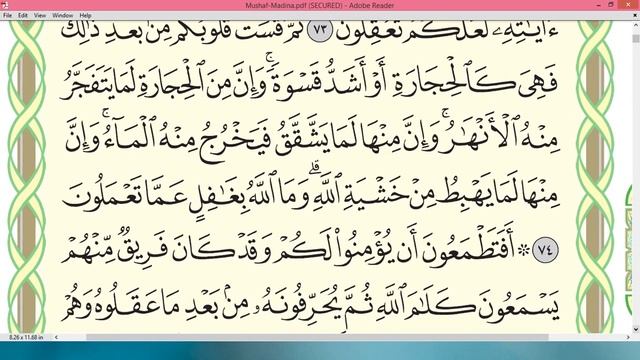 Mushaf-Madina.pdf (SECURED) - Adobe Reader
File Edit View Window Help
ءَايَٰتِهِۦ لَعَلَّكُمۡ تَعۡقِلُونَ ٧٣ ثُمَّ قَسَتۡ قُلُوبُكُم مِّنۢ بَعۡدِ ذَٰلِكَ
فَهِيَ كَٱلۡحِجَارَةِ أَوۡ أَشَدُّ قَسۡوَةٗۚ وَإِنَّ مِنَ ٱلۡحِجَارَةِ لَمَا يَتَفَجَّرُ
مِنۡهُ ٱلۡأَنۡهَٰرُۚ وَإِنَّ مِنۡهَا لَمَا يَشَّقَّقُ فَيَخۡرُجُ مِنۡهُ ٱلۡمَآءُۚ وَإِنَّ
مِنۡهَا لَمَا يَهۡبِطُ مِنۡ خَشۡيَةِ ٱللَّهِۗ وَمَا ٱللَّهُ بِغَٰفِلٍ عَمَّا تَعۡمَلُونَ
٧٤ ۞ أَفَتَطۡمَعُونَ أَن يُؤۡمِنُواْ لَكُمۡ وَقَدۡ كَانَ فَرِيقٞ مِّنۡهُمۡ
يَسۡمَعُونَ كَلَٰمَ ٱللَّهِ ثُمَّ يُحَرِّفُونَهُۥ مِنۢ بَعۡدِ مَا عَقَلُوهُ وَهُمۡ
8.26 x 11.68 in